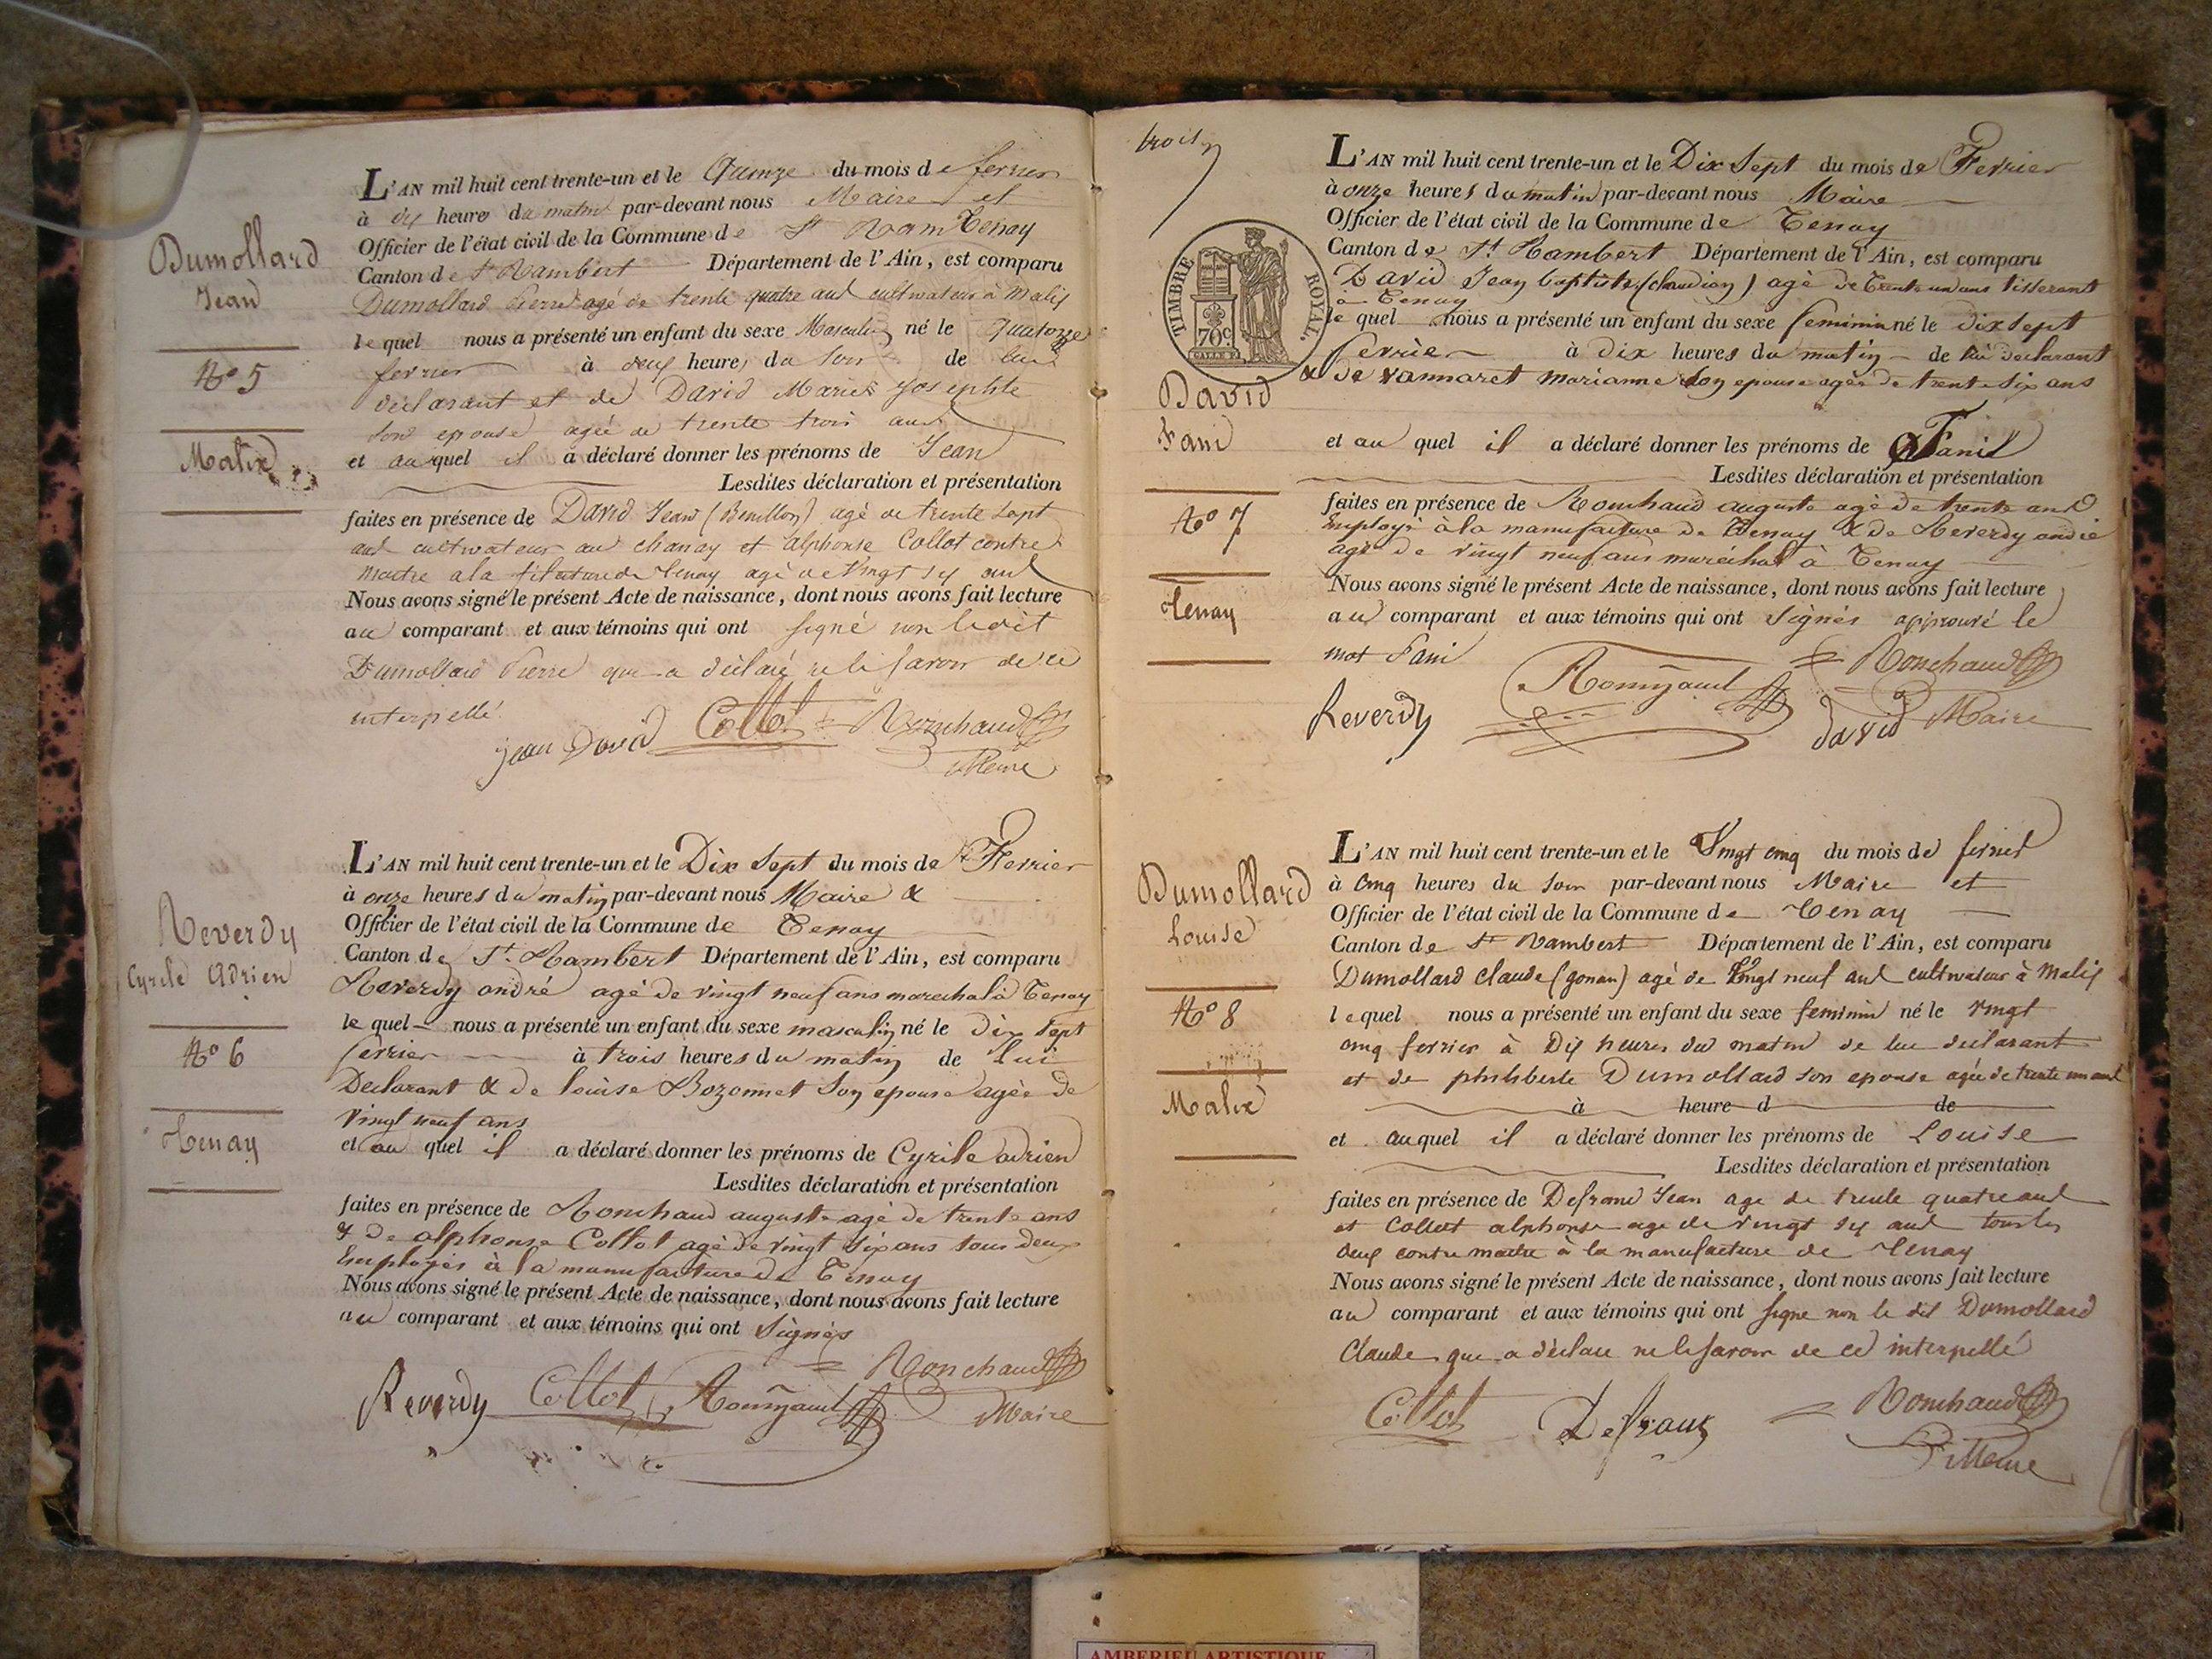 Dumollard
Jean
No 5
Malix
L'AN mil huit cent trente-un et le Quinze du mois de fevrier
à dix heures du matin par-devant nous Maire et
Officier de l'état civil de la Commune de St Ram Tenay
Canton de St Rambert Département de l'Ain, est comparu
Dumollard Pierre agé de trente quatre ans cultivateur à Malix
lequel nous a présenté un enfant du sexe Masculin né le Quatorze
fevrier à deux heures du soir de lui
declarant et de David Marie Josephte
son epouse agée de trente trois ans
et auquel il a déclaré donner les prénoms de Jean
Lesdites déclaration et présentation
faites en présence de David Jean agé de trente sept
ans cultivateur au chanay et alphonse Collot contre
maitre a la filature de Tenay agé de vingt six ans
Nous avons signé le présent Acte de naissance, dont nous avons fait lecture
au comparant et aux témoins qui ont signé non ledit
Dumollard Pierre qui a déclaré ne le savoir de ce
interpellé
jean David Collot Ronchaud
Maire
Reverdy
Cyrile Adrien
No 6
Tenay
L'AN mil huit cent trente-un et le Dix Sept du mois de Fevrier
à onze heures du matin par-devant nous Maire &
Officier de l'état civil de la Commune de Tenay
Canton de St. Rambert Département de l'Ain, est comparu
Reverdy andré agé de vingt neuf ans marechal à Tenay
le quel nous a présenté un enfant du sexe masculin né le dix sept
fevrier à trois heures du matin de lui
Declarant & de louise Bozonnet son epouse agée de
vingt neuf ans
et au quel il a déclaré donner les prénoms de Cyrile adrien
Lesdites déclaration et présentation
faites en présence de Ronchaud auguste agé de trente ans
& de alphonse Collot agé de vingt six ans tous deux
Employés à la manufacture de Tenay
Nous avons signé le présent Acte de naissance, dont nous avons fait lecture
au comparant et aux témoins qui ont Signés
Ronchaud
Reverdy Collot Maire
trois
TIMBRE ROYAL.
70c
David
Fani
No 7
Tenay
L'AN mil huit cent trente-un et le Dix Sept du mois de Fevrier
à onze heures du matin par-devant nous Maire
Officier de l'état civil de la Commune de Tenay
Canton de St. Rambert Département de l'Ain, est comparu
David Jean baptiste (claudion) agé de trente un ans tisserant
a Tenay
le quel nous a présenté un enfant du sexe feminin né le dix sept
fevrier à dix heures du matin de lui declarant
& de vannaret marianne son epouse agée de trente six ans
et au quel il a déclaré donner les prénoms de Fani
Lesdites déclaration et présentation
faites en présence de Ronchaud auguste agé de trente ans
Employé à la manufacture de Tenay & de Reverdy andré
agé de vingt neuf ans maréchal à Tenay
Nous avons signé le présent Acte de naissance, dont nous avons fait lecture
au comparant et aux témoins qui ont Signés approuvé le
mot Fani
Ronchaud
Reverdy david Maire
Dumollard
Louise
No 8
Malix
L'AN mil huit cent trente-un et le Vingt cinq du mois de fevrier
à cinq heures du soir par-devant nous Maire et
Officier de l'état civil de la Commune de Tenay
Canton de St Rambert Département de l'Ain, est comparu
Dumollard claude (gonan) agé de Vingt neuf ans cultivateur à Malix
lequel nous a présenté un enfant du sexe feminin né le vingt
cinq fevrier à Dix heures du matin de lui déclarant
et de philiberte Dumollard son epouse agée de trente un ans
à heure d de
et auquel il a déclaré donner les prénoms de Louise
Lesdites déclaration et présentation
faites en présence de Jean age de trente quatre ans
et Collot alphonse age de vingt six ans tous les
deux contre maitre à la manufacture de Tenay
Nous avons signé le présent Acte de naissance, dont nous avons fait lecture
au comparant et aux témoins qui ont signe non le dit Dumollard
Claude que a déclaré ne le savoir de ce interpellé
Collot Ronchaud
Maire
AMBERIEU ARTISTIQUE